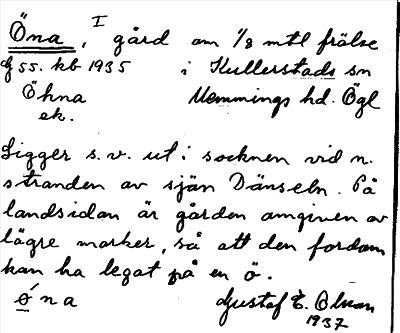 Öna, I gård om 1/8 mtl frälse
jf 55. kb 1935 i Kullerstads sn
Öhna Memmings hd. Ögl
ek.
Ligger s.v. ut i socknen vid n.
stranden av sjön Dänseln. På
landsidan är gården omgiven av
lägre marker, så att den fordom
kan ha legat på en ö.
øna Gustaf E. Olsson
1937